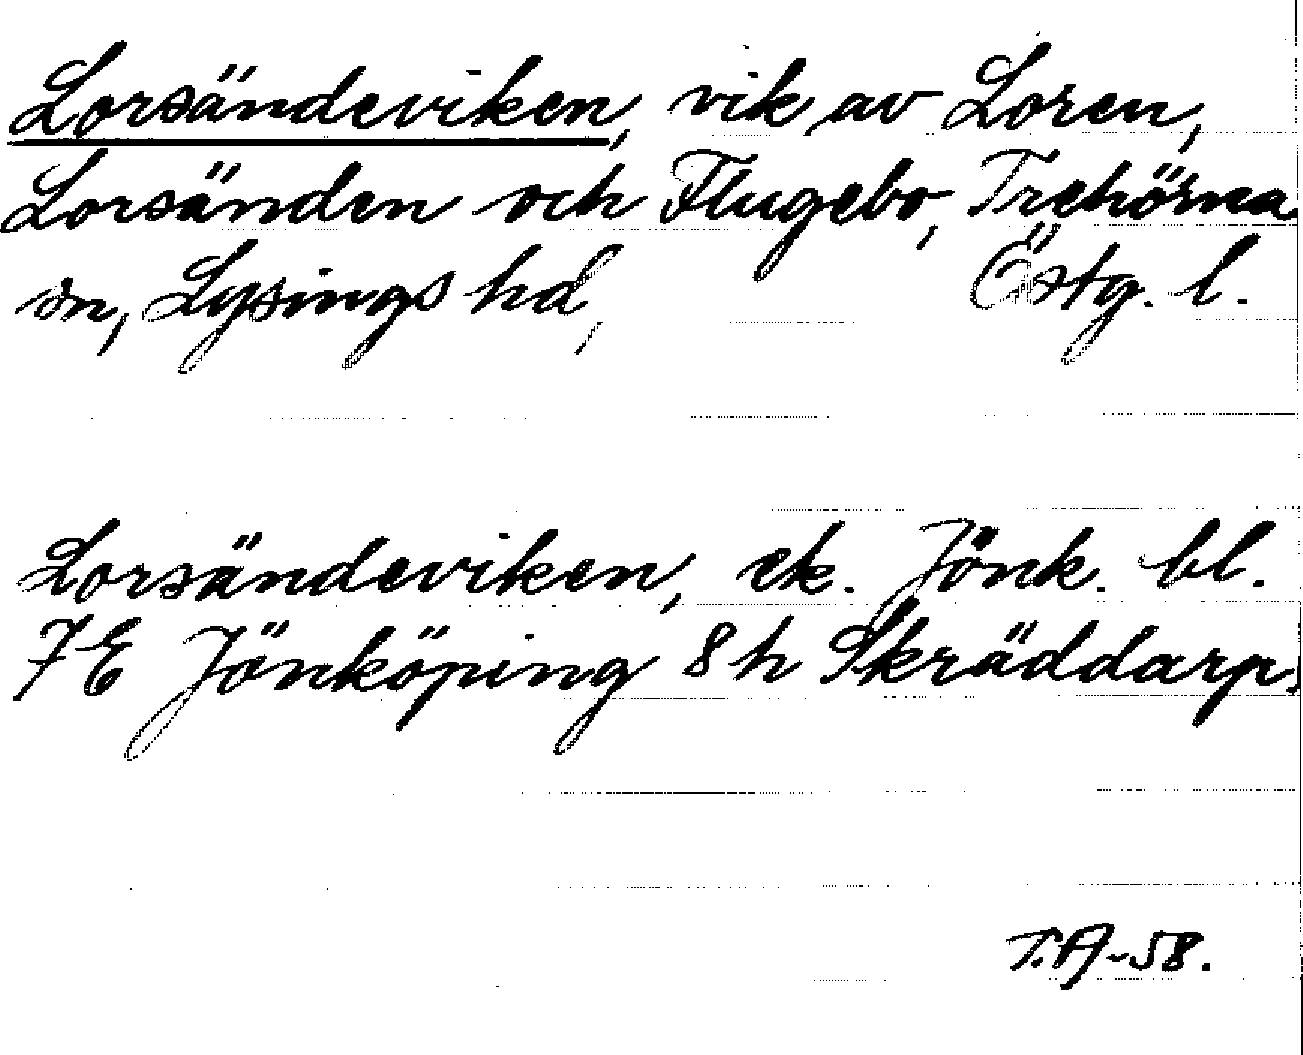 Lorsändeviken, vik av Loren,
Lorsänden och Flugebo, Trehörna
sn, Lysings hd, Östg. l.
Lorsändeviken, ek. Jönk. bl.
7E Jönköping 8h Skräddarp.
T.A-58.